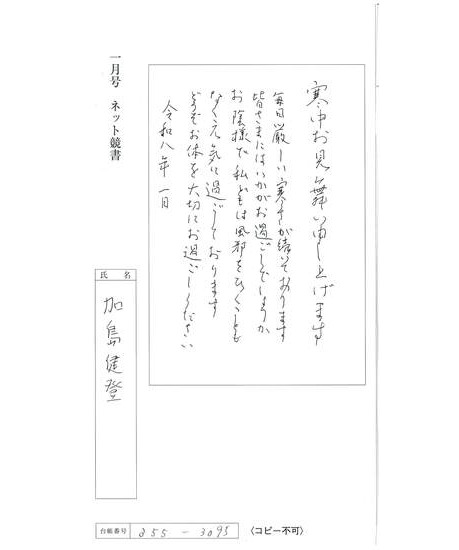 寒中お見舞い申し上げます
毎日厳しい寒さが続いております
皆さまにはいかがお過ごしでしょうか
お陰様で私どもは風邪をひくことも
なく元気に過ごしております
どうぞお体を大切にお過ごしください
令和八年 一月
一月号 ネット競書
氏名
加島健登
台帳番号 255-3095
〈コピー不可〉